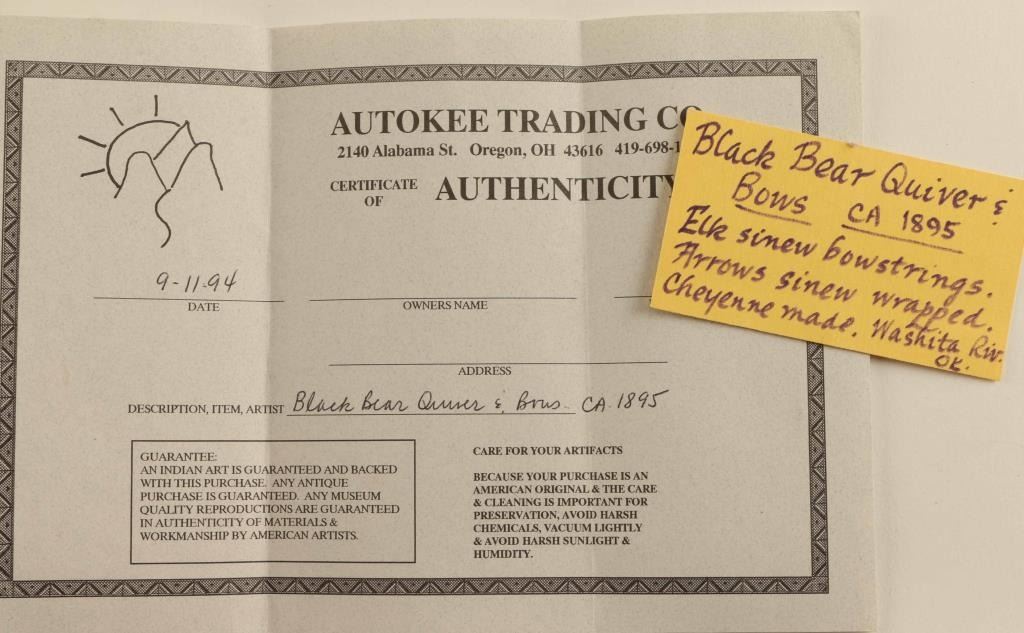 AUTOKEE TRADING CO
2140 Alabama St. Oregon, OH 43616 419-698-1
CERTIFICATE
OF
AUTHENTICITY
9-11-94
DATE
OWNERS NAME
ADDRESS
DESCRIPTION, ITEM, ARTIST Black Bear Quiver & Bows CA. 1895
GUARANTEE:
AN INDIAN ART IS GUARANTEED AND BACKED
WITH THIS PURCHASE. ANY ANTIQUE
PURCHASE IS GUARANTEED. ANY MUSEUM
QUALITY REPRODUCTIONS ARE GUARANTEED
IN AUTHENTICITY OF MATERIALS &
WORKMANSHIP BY AMERICAN ARTISTS.
CARE FOR YOUR ARTIFACTS
BECAUSE YOUR PURCHASE IS AN
AMERICAN ORIGINAL & THE CARE
& CLEANING IS IMPORTANT FOR
PRESERVATION, AVOID HARSH
CHEMICALS, VACUUM LIGHTLY
& AVOID HARSH SUNLIGHT &
HUMIDITY.
Black Bear Quiver &
Bows CA 1895
Elk sinew bowstrings.
Arrows sinew wrapped.
Cheyenne made. Washita Riv.
OK.